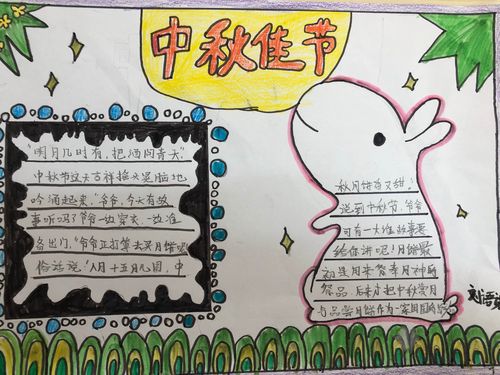 中秋佳节
"明月几时有，把酒问青天"
中秋节这天吉祥摇头晃脑地
吟诵起来，"爷爷，今天有故
事听吗？"爷爷一边穿衣，一边准
备出门，"爷爷正打算去买月饼呢
俗话说，'八月十五月儿圆，中
秋月饼香又甜'，
说到中秋节，爷爷
可有一大堆故事要
给你讲呢！月饼最
初是用来祭奉月神的
祭品，后来才把中秋赏月
与品尝月饼作为一家团圆的